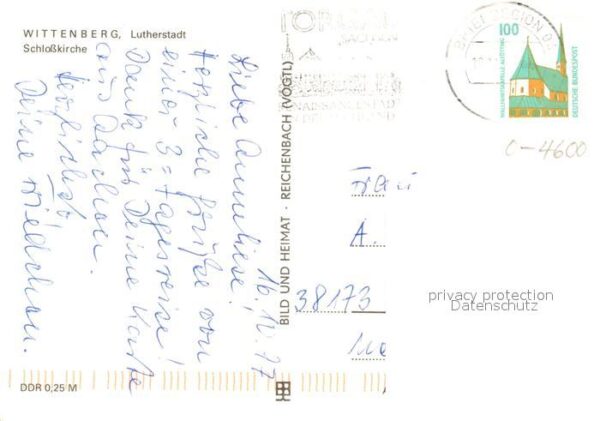 WITTENBERG, Lutherstadt
Schloßkirche
16.10.97
Liebe Anneliese!
Herzliche Grüße von
einer 3=Tagesreise!
Dank für Deine Karte
aus Aachen.
Herzlichst
Deine
DDR 0,25 M
BILD UND HEIMAT · REICHENBACH (VOGTL)
TORGAU
SACHSEN
BRIEFREGION 04
100
DEUTSCHE BUNDESPOST
c-4600
Frau
A.
38173
privacy protection
Datenschutz